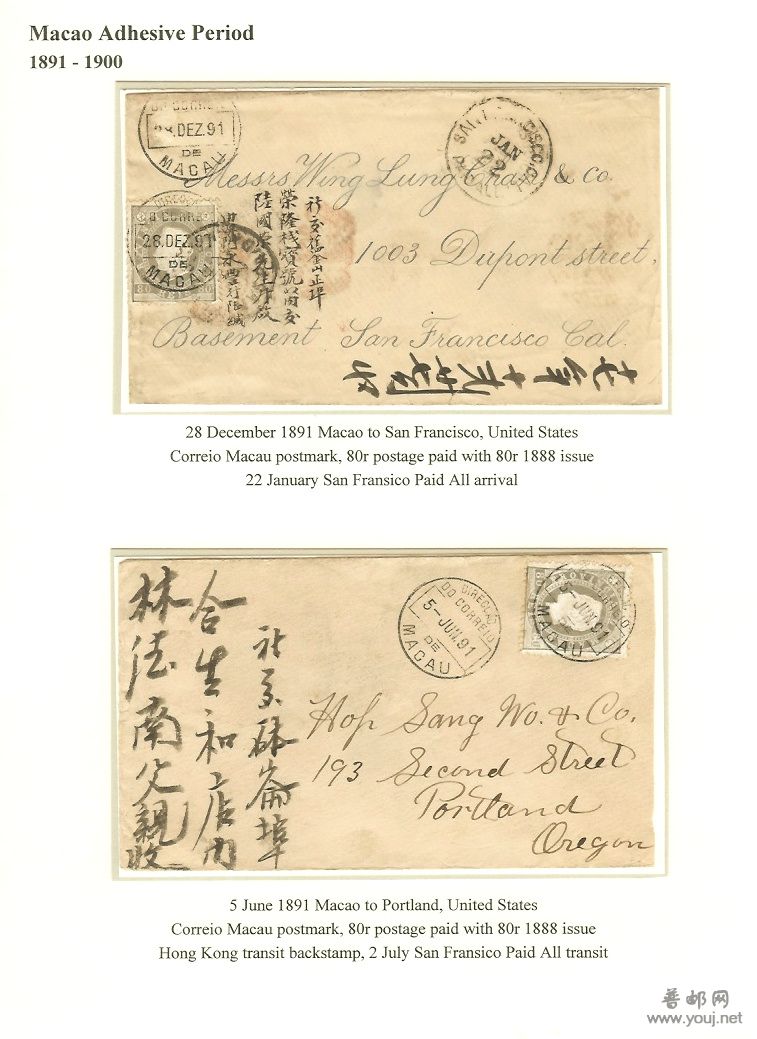 Macao Adhesive Period
1891 - 1900
DO CORREIO
28.DEZ.91
DE
MACAU
SAN FRANCISCO, CAL.
JAN
22
PAID ALL
Messrs Wing Lung Chan & Co.
1003 Dupont street,
Basement San Francisco Cal.
DIRECÇÃO
DO CORREIO
28.DEZ.91
DE
MACAU
祈交舊金山正埠
榮隆栈寶號苗交
陸國
28 December 1891 Macao to San Francisco, United States
Correio Macau postmark, 80r postage paid with 80r 1888 issue
22 January San Fransico Paid All arrival
林德南父親收
合生和店内
砵崙埠
DIRECÇÃO
DO CORREIO
5-JUN.91
DE
MACAU
JUN.91
MACAU
Hop Sang Wo. & Co.
193 Second Street
Portland
Oregon
5 June 1891 Macao to Portland, United States
Correio Macau postmark, 80r postage paid with 80r 1888 issue
Hong Kong transit backstamp, 2 July San Fransico Paid All transit
普邮网
www.youj.net